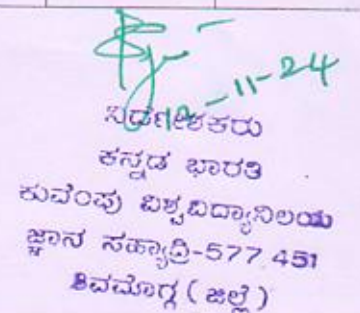 12-11-24
ನಿರ್ದೇಶಕರು
ಕನ್ನಡ ಭಾರತಿ
ಕುವೆಂಪು ವಿಶ್ವವಿದ್ಯಾನಿಲಯ
ಜ್ಞಾನ ಸಹ್ಯಾದ್ರಿ-577 451
ಶಿವಮೊಗ್ಗ ( ಜಿಲ್ಲೆ )